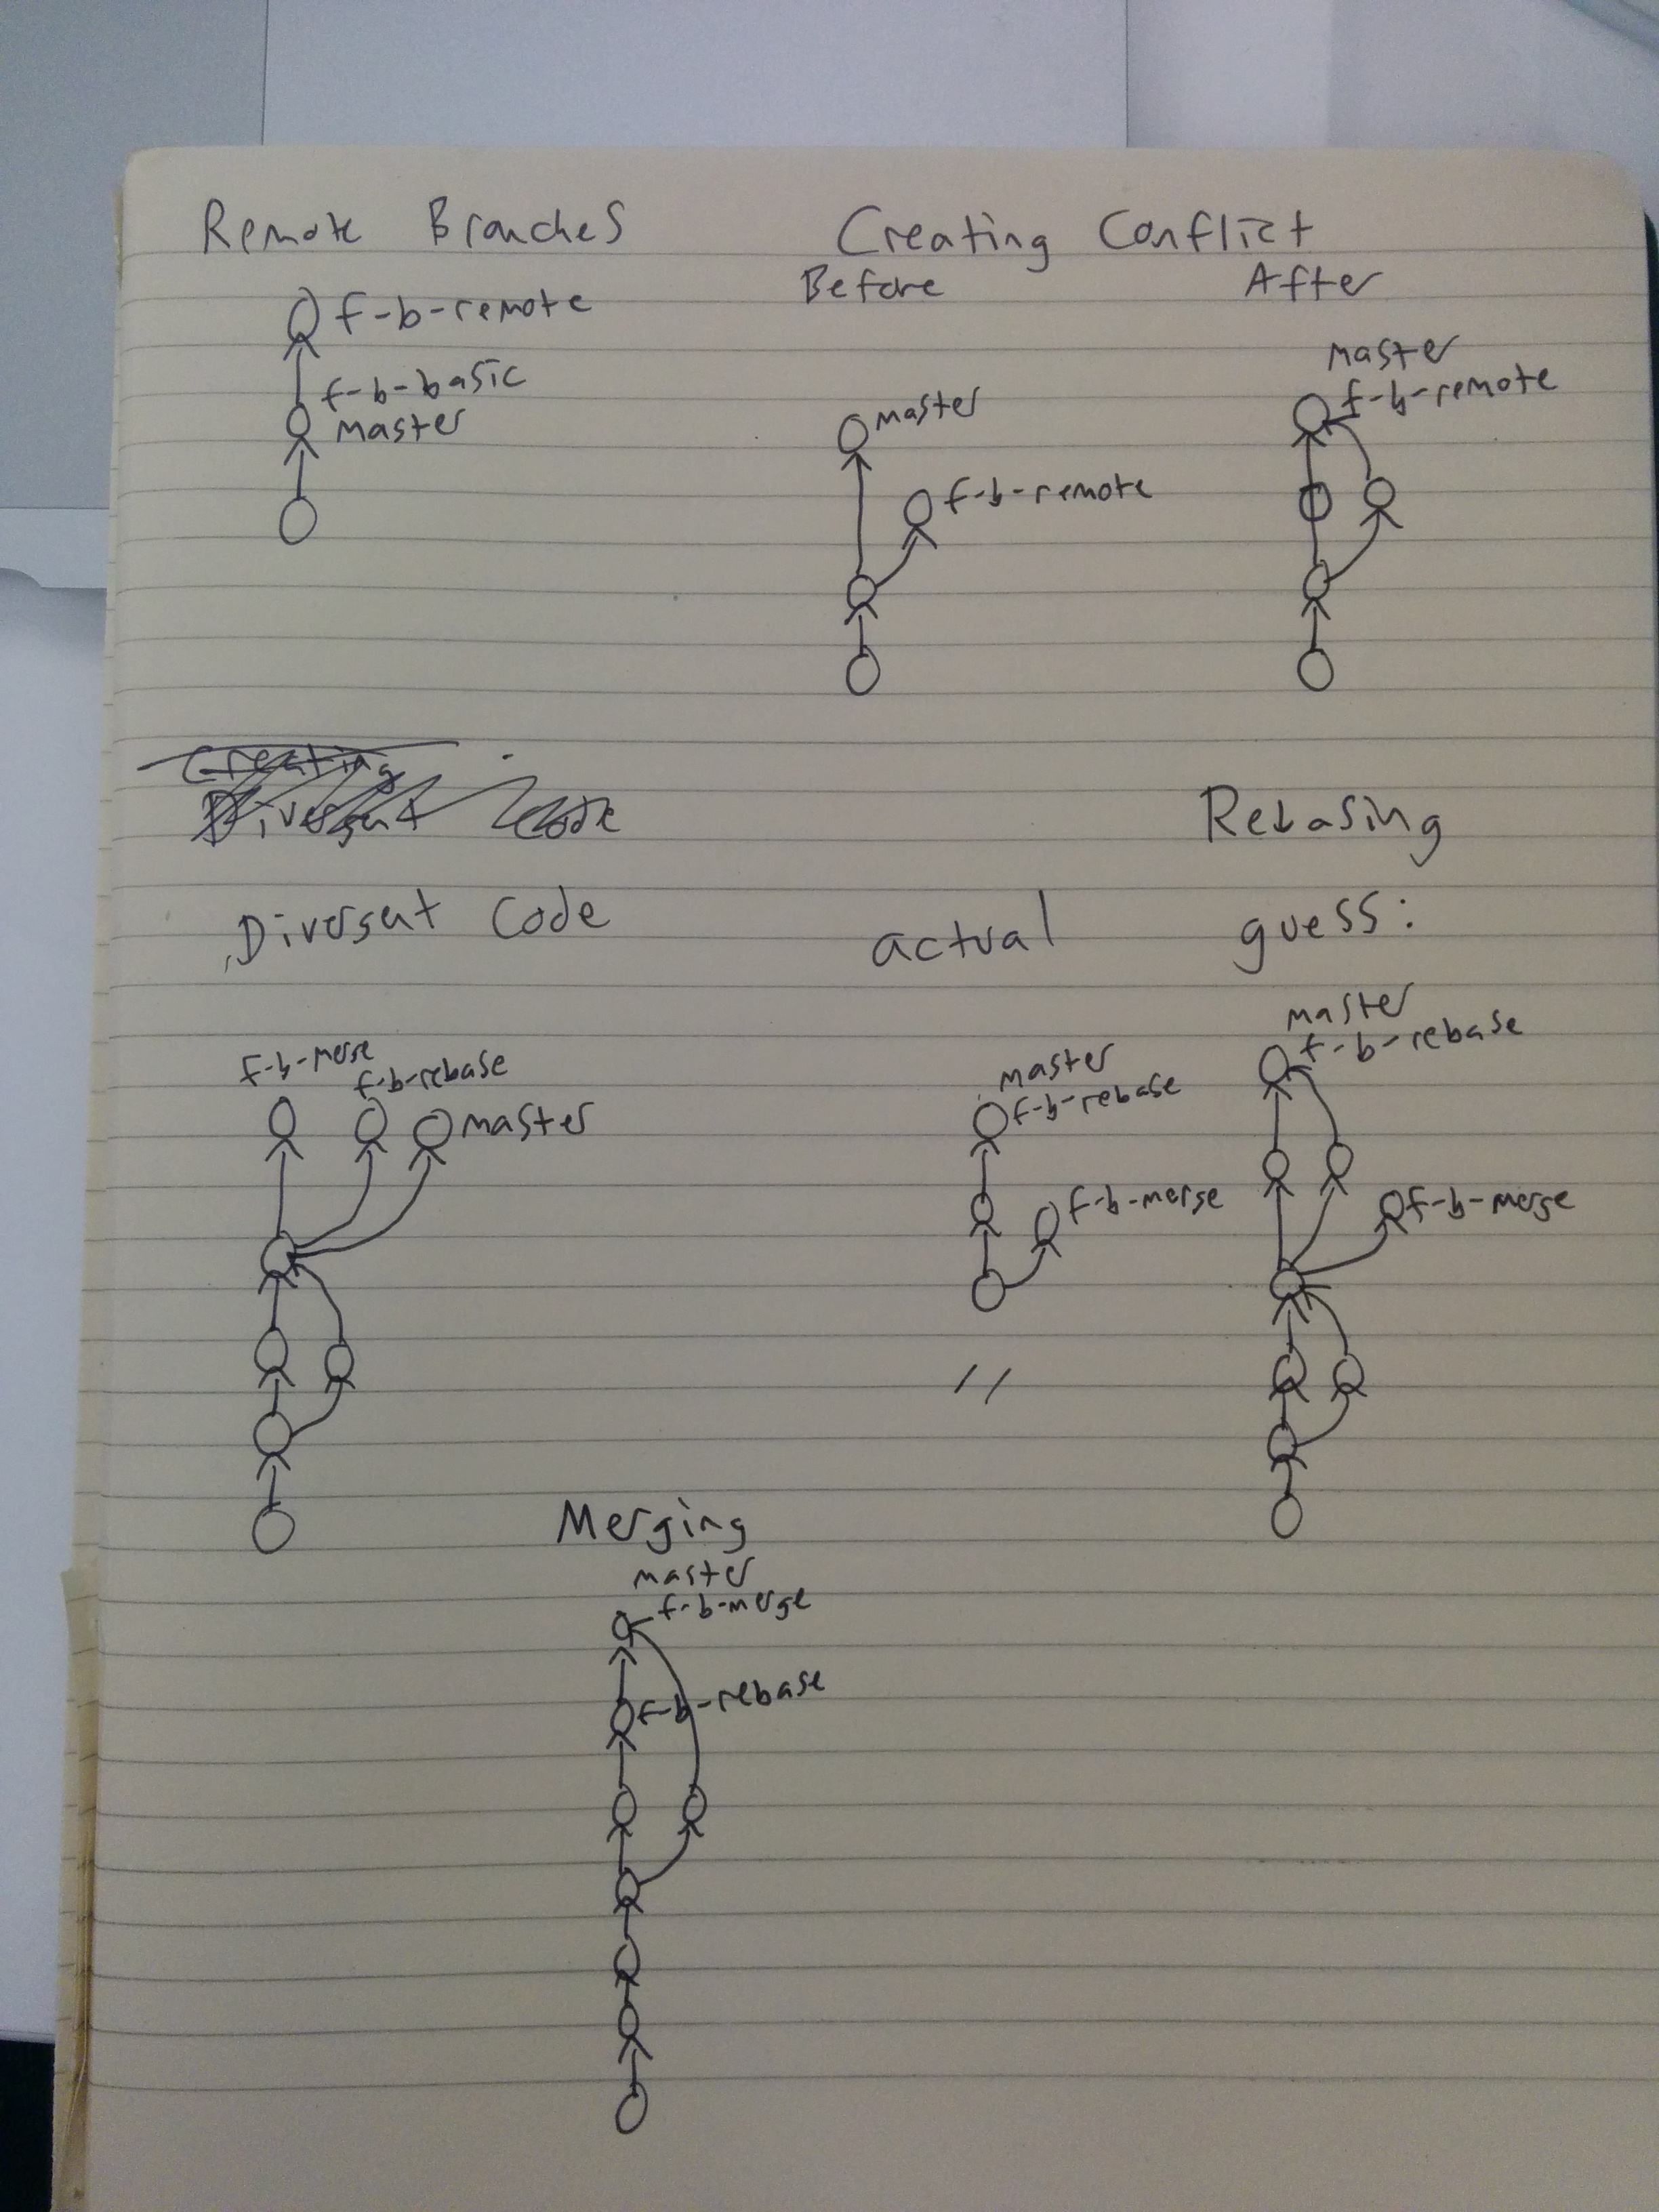 Remote Branches
f-b-remote
f-b-basic
master
Creating Conflict
Before
After
master
f-b-remote
master
f-b-remote
Creating
Divergent Code
Divergent Code
f-b-merge
f-b-rebase
master
Rebasing
actual
guess:
master
f-b-rebase
f-b-merge
master
f-b-rebase
f-b-merge
Merging
master
f-b-merge
f-b-rebase